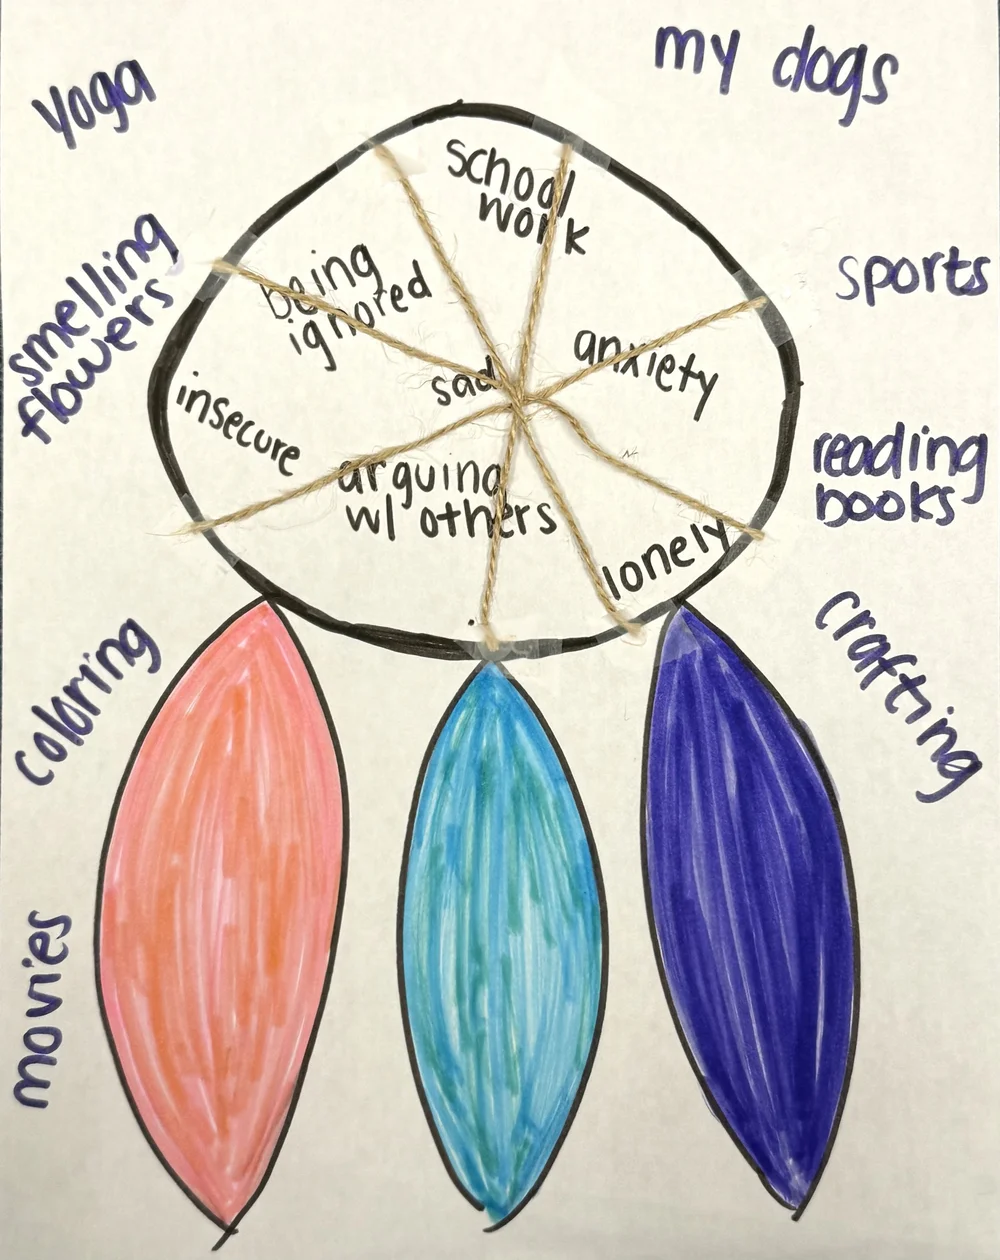 Yoga
my dogs
smelling
flowers
school
work
being
ignored
sports
anxiety
sad
insecure
arguing
w/ others
lonely
reading
books
coloring
crafting
movies